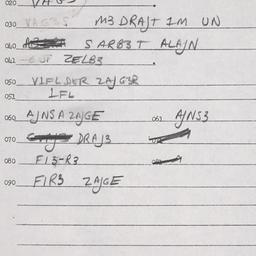 020 VAGS
030 VAG3S M3 DRAJT IM UN
040 SARB3T ALAJN
041 ZELB3
050 VIFLDER ZAJG3R
051 IFL
060 AJNSAZAJGE 061 AJNS3
070 DRAJ3
080 FI5-R3
090 FIR3 ZAJGE